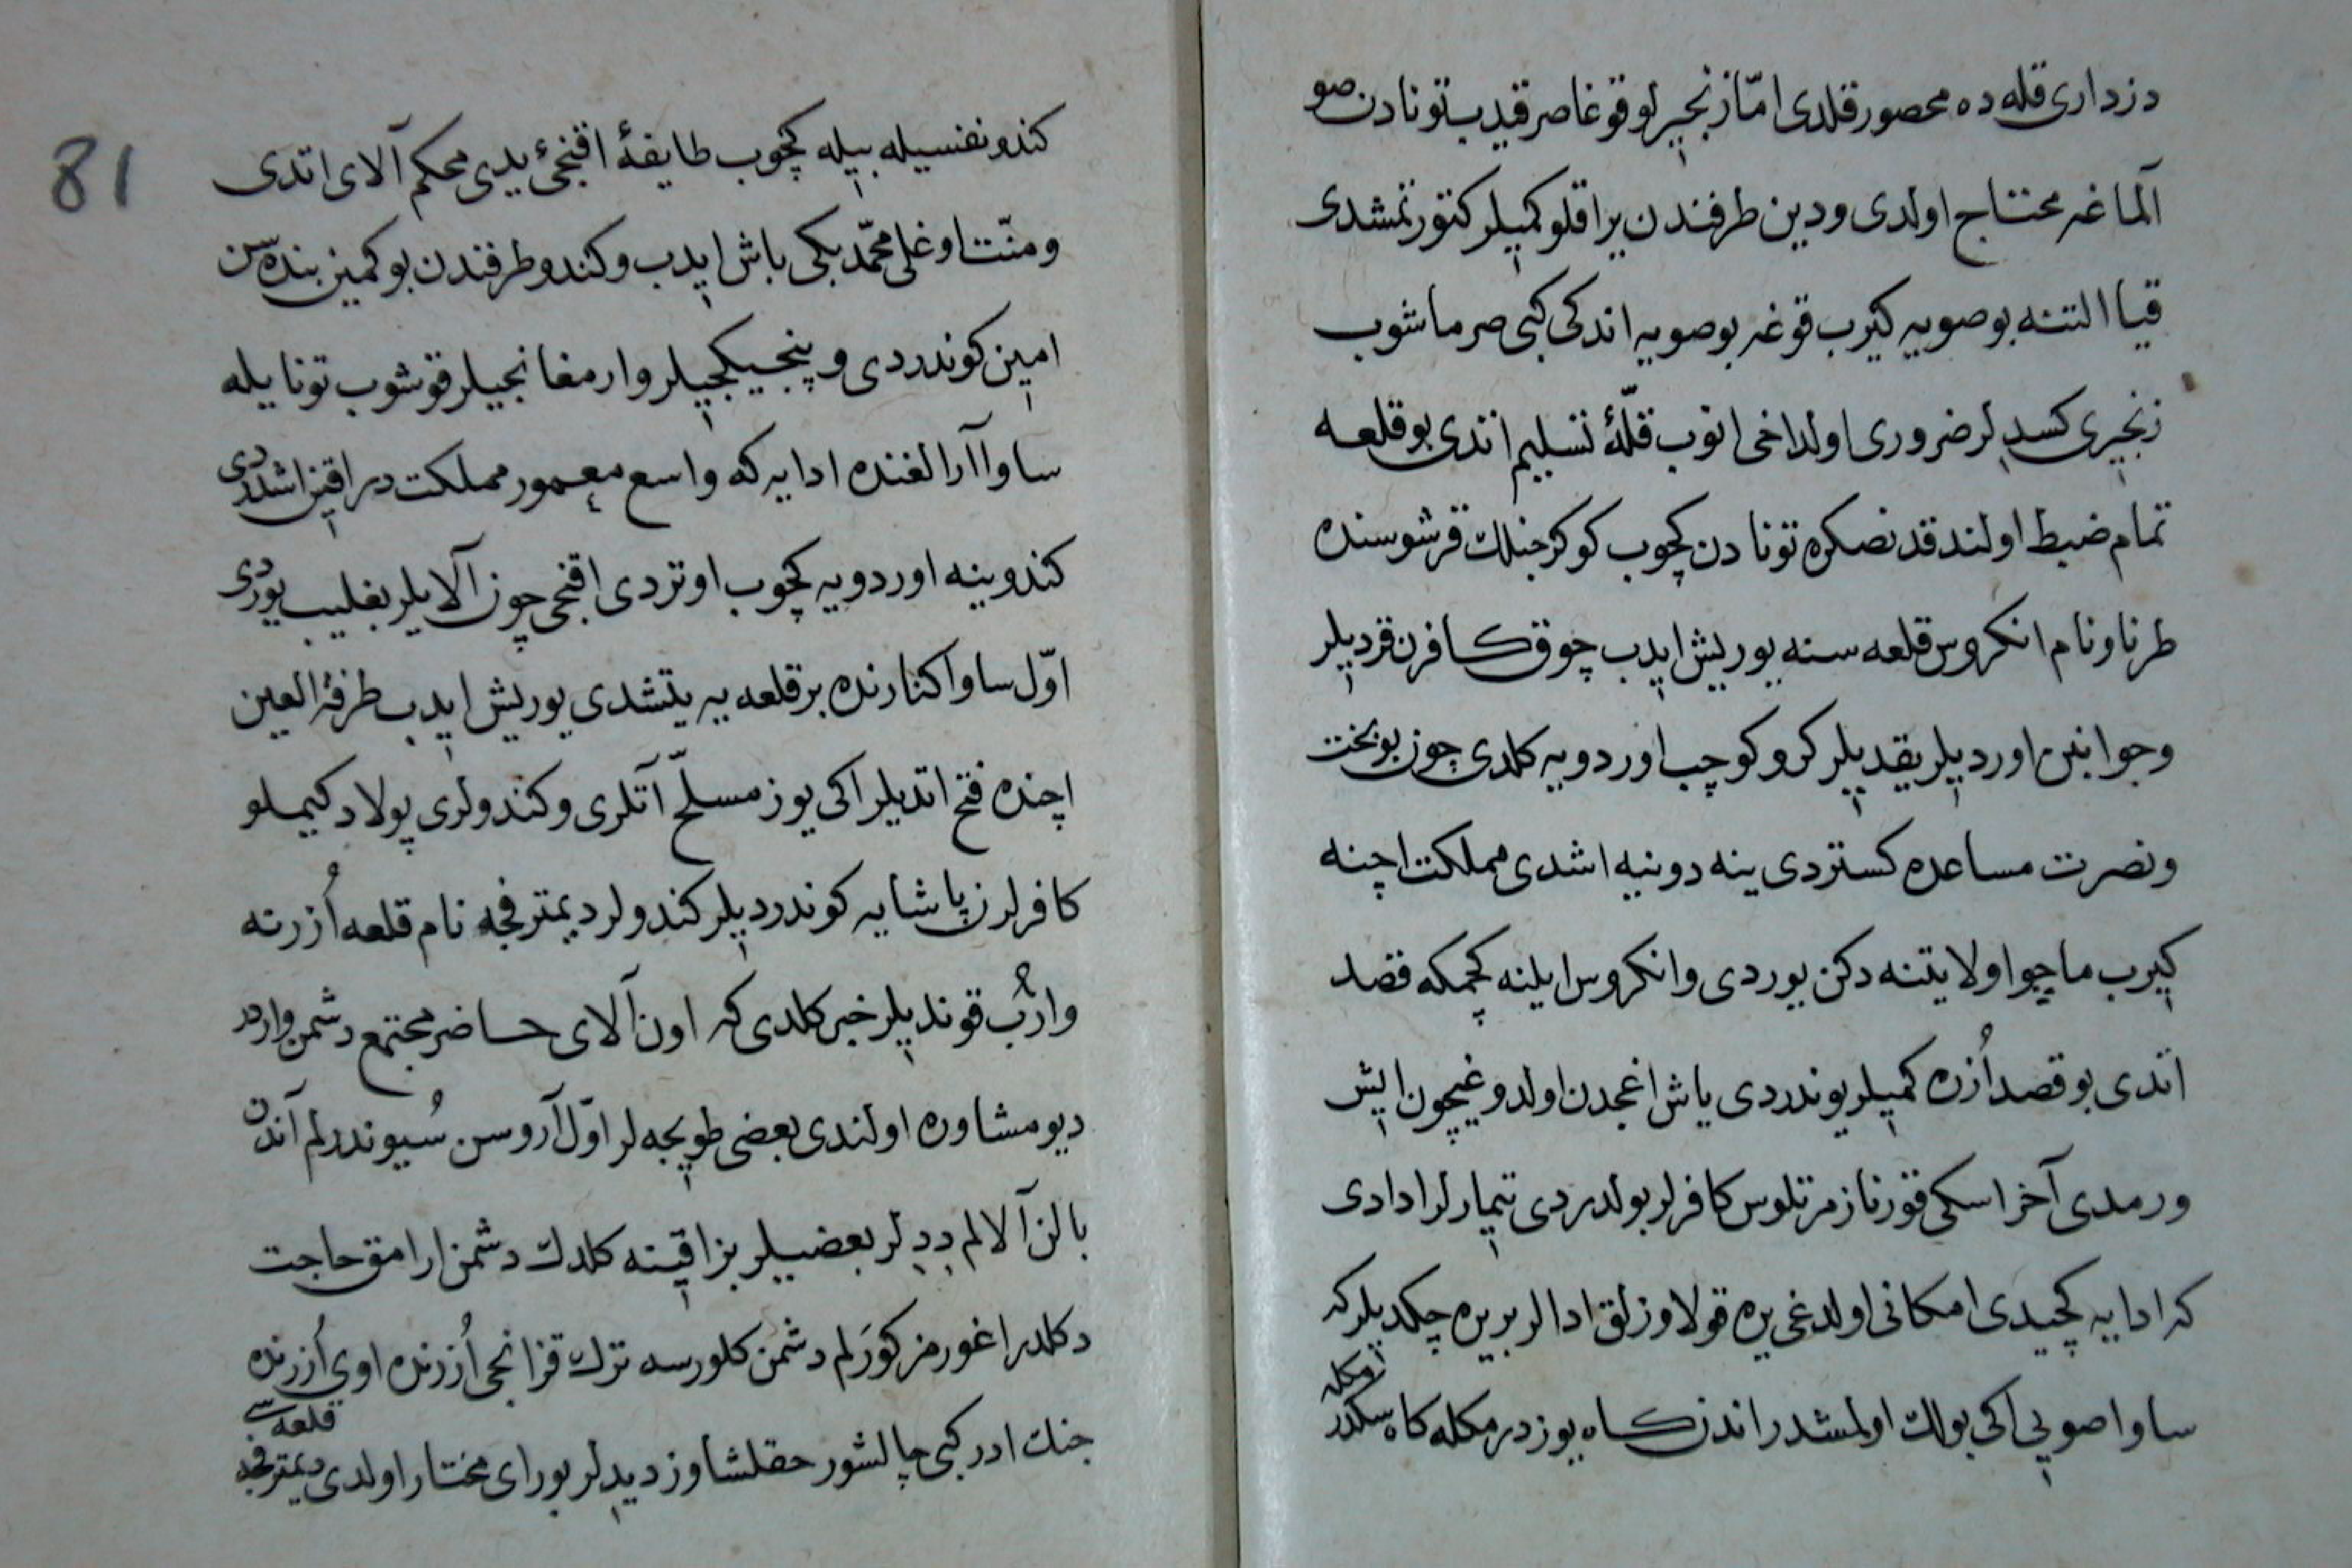 دزداری قله ده محصور قلدی امّا زنجیرلو قوغا صرقیدب تونادن صو
آلماغه محتاج اولدی ودین طرفندن یراقلو کمیلر کتورتمشدی
قیا التنه بو صویه کیرب قوغه بو صویه اندکی کبی صرماشوب
زنجیری کسدلر ضروری اولداخی انوب قلّهٔ تسلیم اتدی بو قلعه
تمام ضبط اولندقدنصکره تونادن کچوب کوکرجنلك قرشوسنده
طرناو نام انکروس قلعه سنه یوریش ایدب چوق کافرن قردیلر
وجوانبن اوردیلر یقدیلر کرو کوچب اوردویه کلدی چون بو بخت
ونصرت مساعده کستردی ینه دونیه اشدی مملکت اچنه
کیرب ماچوا ولایتنه دکن یوردی وانکروس ایلنه کچمکه قصد
اتدی بو قصد اُزره کمیلر یوندردی یاش اغجدن اولدوغیچون ایش
ورمدی آخر اسکی قوزنازمرتلوس کافرلر بولدردی تیمارلر ادادی
که ادایه کچیدی امکانی اولدغی یره قولاوزلق ادالر بریره چکدیلر که
ساوا صویی اکی بولك اولمشدر اندن کاه یوزدرمکله کاه سکدرمکله
81
کندو نفسیله بیله کچوب طایفهٔ اقنجیٔ یدی محکم آلای اتدی
ومنّت اوغلی محمّد بکی باش ایدب وکندو طرفندن بو کمین بنده سن
امین کوندردی وینجیکجیلر وارمغانجیلر قوشوب تونایله
ساوا آرالغنده ادایه که واسع معمور مملکت در اقین اشدردی
کندو ینه اوردویه کچوب اوتردی اقنجی چون آلایلر بغلیب یوردی
اوّل ساوا کنارنده بر قلعه یه یتشدی یوریش ایدب طرفة العین
اچنده فتح اتدیلر اکی یوز مسلّح آتلری وکندولری پولاد کیملو
کافرلرن پاشایه کوندردیلر کندولر دیمترفجه نام قلعه اُزرنه
وارُب قوندیلر خبر کلدی که اون آلای حاضر مجتمع دشمن واردر
دیو مشاوره اولندی بعضی طویجه لر اوّل آروسن سُیوندرلم آندن
بالن آلالم ددلر بعضیلر بز اقینه کلدك دشمن ارامق حاجت
دکلدر اغورمز کورَلم دشمن کلورسه ترك قزانجی اُزرنده اوی اُزرنده
جنك ادر کبی چالشور حقلشاوز دیدلر بو رای مختار اولدی دیمترفجه قلعه سی